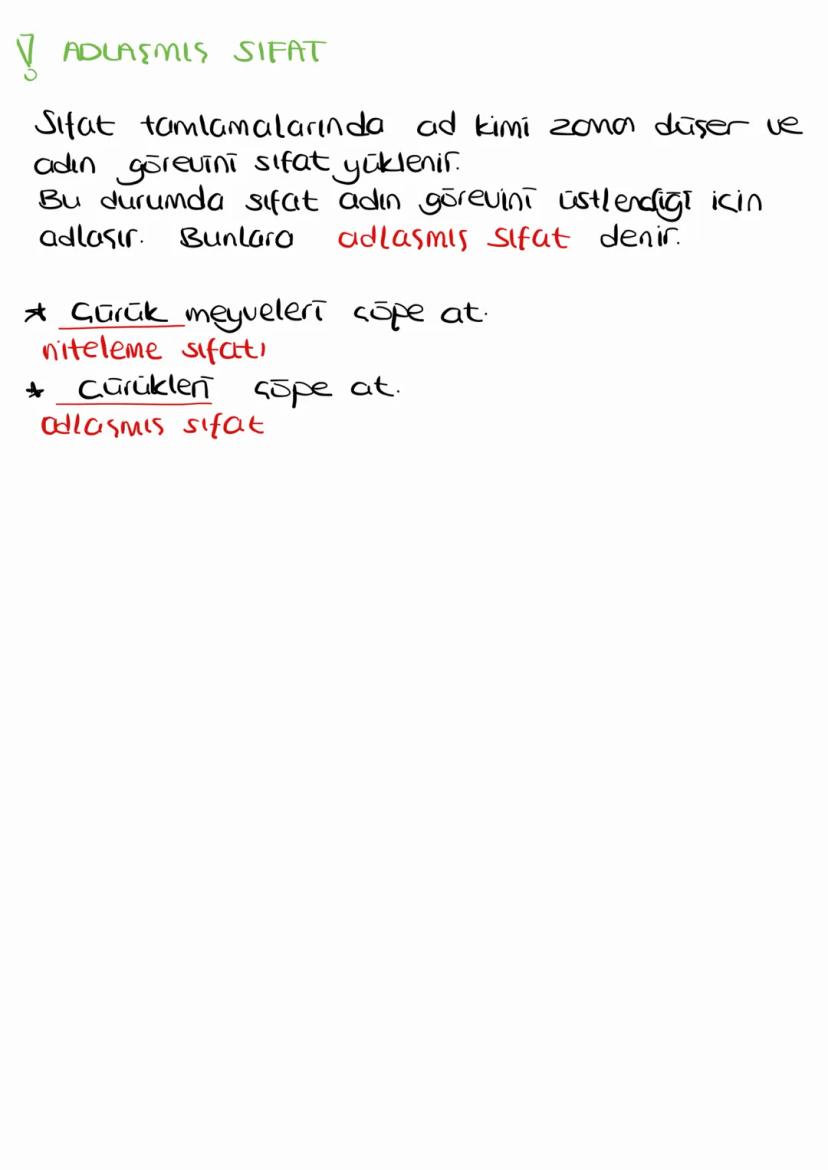 ! ADLAŞMIŞ SIFAT
Sıfat tamlamalarında ad kimi zaman düşer ve
adın görevini sıfat yüklenir.
Bu durumda sıfat adın görevini üstlendiği için
adlaşır. Bunlara adlaşmış sıfat denir.
* Çürük meyveleri çöpe at.
niteleme sıfatı
* Çürükleri çöpe at.
adlaşmış sıfat